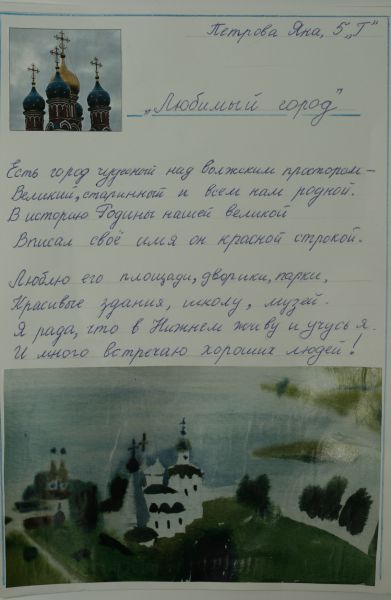 Петрова Яна, 5 „Г"
„Любимый город"
Есть город чудесный над волжским простором –
Великий, старинный и всем нам родной.
В историю Родины нашей великой
Вписал своё имя он красной строкой.
Люблю его площади, дворики, парки,
Красивые здания, школу, музей.
Я рада, что в Нижнем живу и учусь я.
И много встречаю хороших людей!